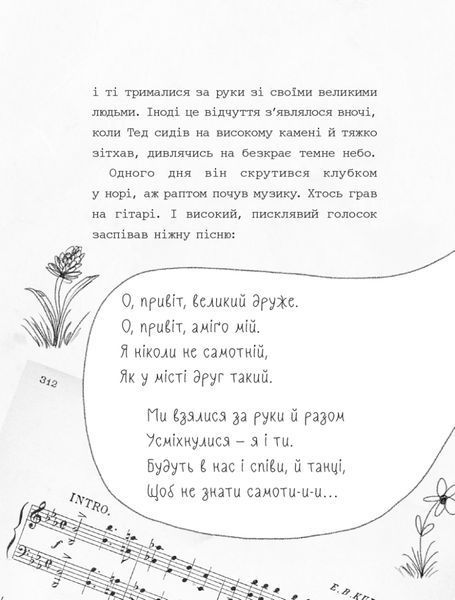 і ті трималися за руки зі своїми великими
людьми. Іноді це відчуття з’являлося вночі,
коли Тед сидів на високому камені й тяжко
зітхав, дивлячись на безкрає темне небо.
Одного дня він скрутився клубком
у норі, аж раптом почув музику. Хтось грав
на гітарі. І високий, писклявий голосок
заспівав ніжну пісню:
О, привіт, великий друже.
О, привіт, аміґо мій.
Я ніколи не самотній,
Як у місті друг такий.
Ми взялися за руки й разом
Усміхнулися – я і ти.
Будуть в нас і співи, й танці,
Щоб не знати самоти-и-и...
312
INTRO.
f